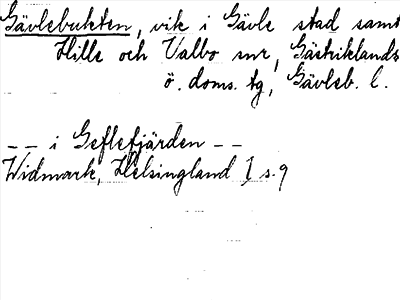 Gävlebukten, vik i Gävle stad samt
Hille och Valbo snr, Gästriklands
ö. doms. tg, Gävleb. l.
-- i Geflefjärden --
Widmark, Helsingland I s. 9